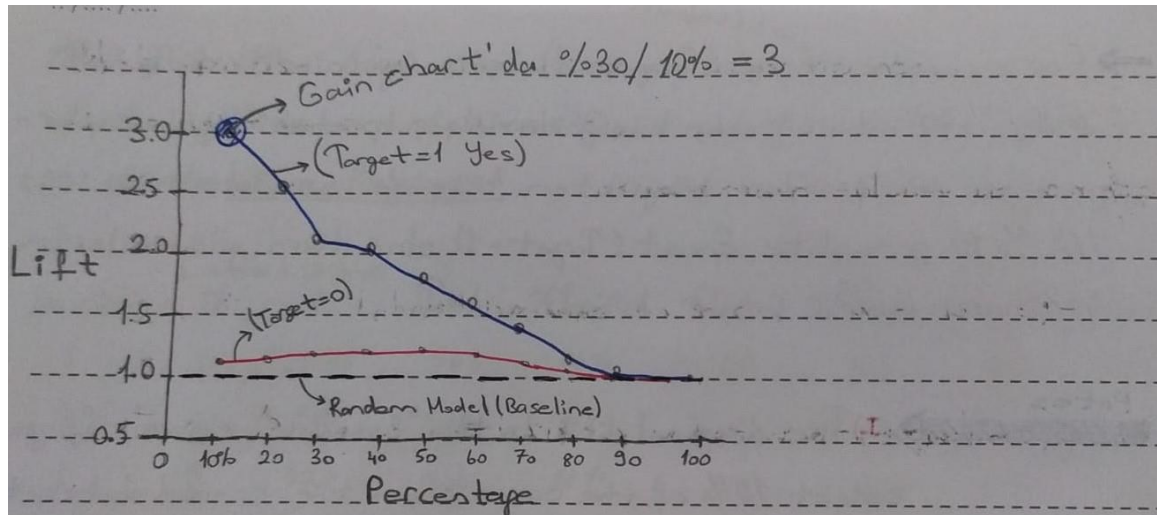 Gain chart'da %30/10% = 3
3.0
(Target=1 Yes)
2.5
2.0
Lift
(Target=0)
1.5
1.0
Random Model (Baseline)
0.5
0 10% 20 30 40 50 60 70 80 90 100
Percentage